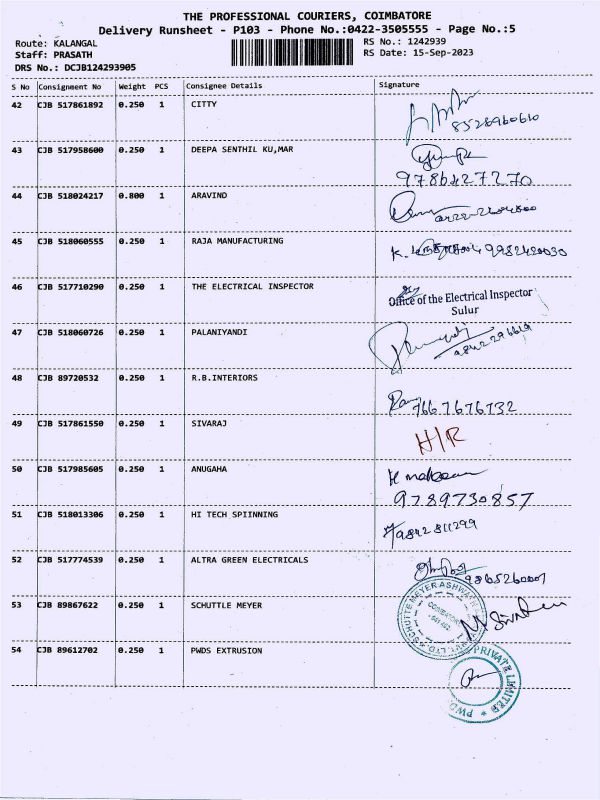 THE PROFESSIONAL COURIERS, COIMBATORE
Delivery Runsheet - P103 - Phone No.:0422-3505555 - Page No.:5
Route: KALANGAL RS No.: 1242939
Staff: PRASATH RS Date: 15-Sep-2023
DRS No.: DCJB124293905
S No Consignment No Weight PCS Consignee Details Signature
42 CJB 517861892 0.250 1 CITTY
8528960610
43 CJB 517958600 0.250 1 DEEPA SENTHIL KU,MAR
9786427270
44 CJB 518024217 0.800 1 ARAVIND
45 CJB 518060555 0.250 1 RAJA MANUFACTURING
46 CJB 517710290 0.250 1 THE ELECTRICAL INSPECTOR
Office of the Electrical Inspector
Sulur
47 CJB 518060726 0.250 1 PALANIYANDI
48 CJB 89720532 0.250 1 R.B.INTERIORS
7667676732
49 CJB 517861550 0.250 1 SIVARAJ
H/R
50 CJB 517985605 0.250 1 ANUGAHA
9789730857
51 CJB 518013306 0.250 1 HI TECH SPIINNING
9842811299
52 CJB 517774539 0.250 1 ALTRA GREEN ELECTRICALS
53 CJB 89867622 0.250 1 SCHUTTLE MEYER
54 CJB 89612702 0.250 1 PWDS EXTRUSION
PRIVATE LIMITED * PWDS